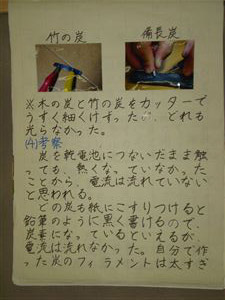 竹の炭
備長炭
※木の炭と竹の炭をカッターで
うすく細くけずったが、どれも
光らなかった。
(4)考察
炭を乾電池につないだまま触
っても、熱くなっていなかった
ことから、電流は流れていない
と思われる。
どの炭も紙にこすりつけると
鉛筆のように黒く書けるので、
炭素になっているといえるが、
電流は流れなかった。自分で作
った炭のフィラメントは太すぎ